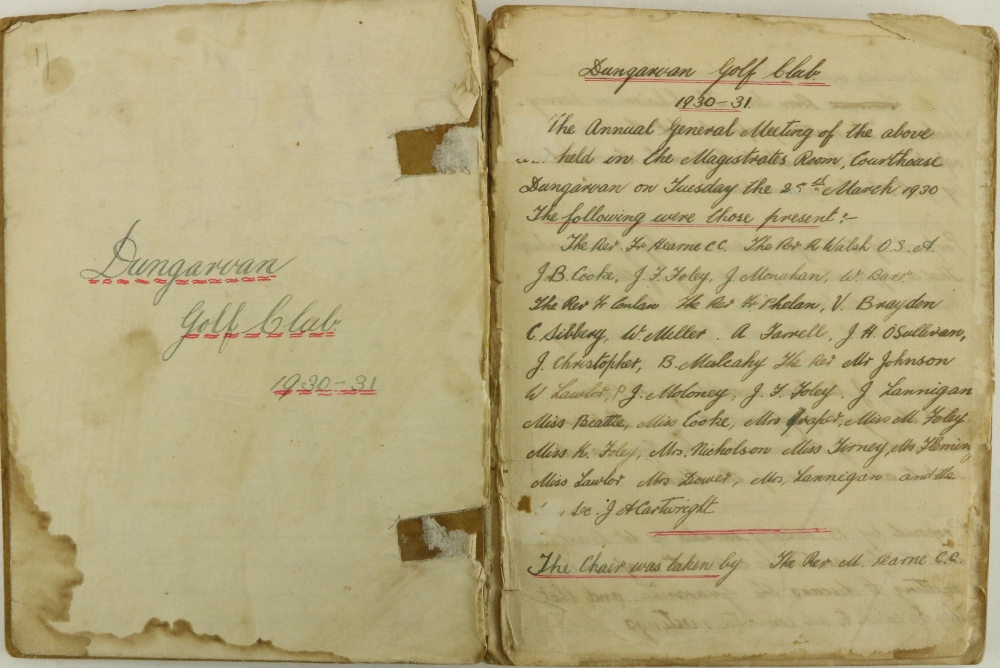 11
Dungarvan
Golf Club
1930-31
Dungarvan Golf Club
1930-31.
The Annual General Meeting of the above
held in the Magistrates Room, Courthouse
Dungarvan on Tuesday the 25th March 1930
The following were those present:-
The Rev. Fr Kearne C.C. The Rev R Walsh O.S.A.
J.B. Cooke, J.F. Foley, J. Monahan, W. Barr.
The Rev Fr Conlan The Rev Fr Phelan, V. Brayden
C. Sibbery, W. Miller. A Farrell, J.H. O'Sullivan,
J. Christopher, B. Mulcahy The Rev Mr Johnson
W Lawlor, P.J. Moloney, J.F. Foley. J Lannigan
Miss Beattie, Miss Cooke, Mrs Draper, Miss M. Foley
Miss K. Foley, Mrs. Nicholson Miss Tirney, Ms Flemin
Miss Lawlor Mrs Dower, Mrs, Lannigan and the
Sec. J A Cartwright
The Chair was taken by The Rev M. Kearne C.C.